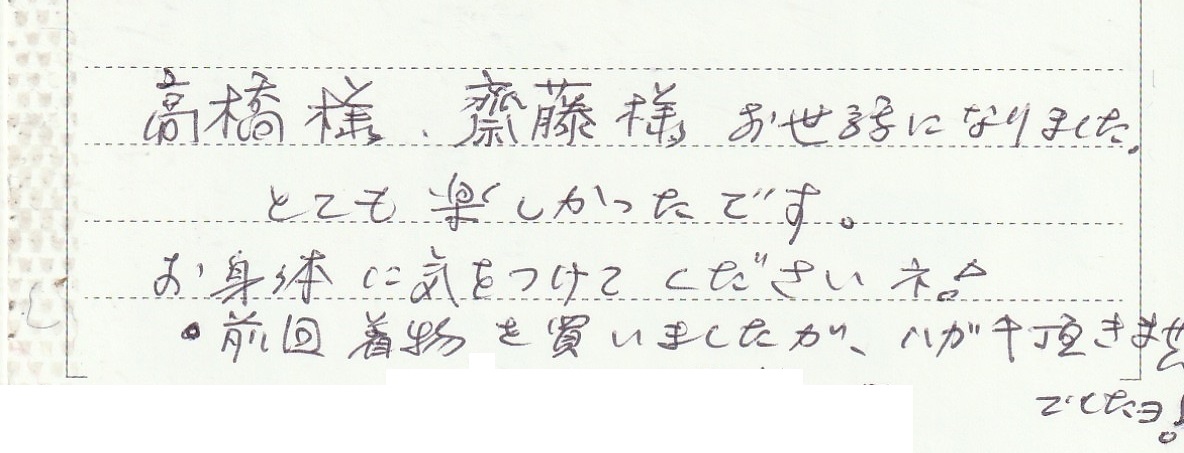 高橋様、齋藤様 お世話になりました。
とても楽しかったです。
お身体に気をつけてくださいネ。
・前回着物を買いましたが、ハガキ頂きません
でしたヨ!